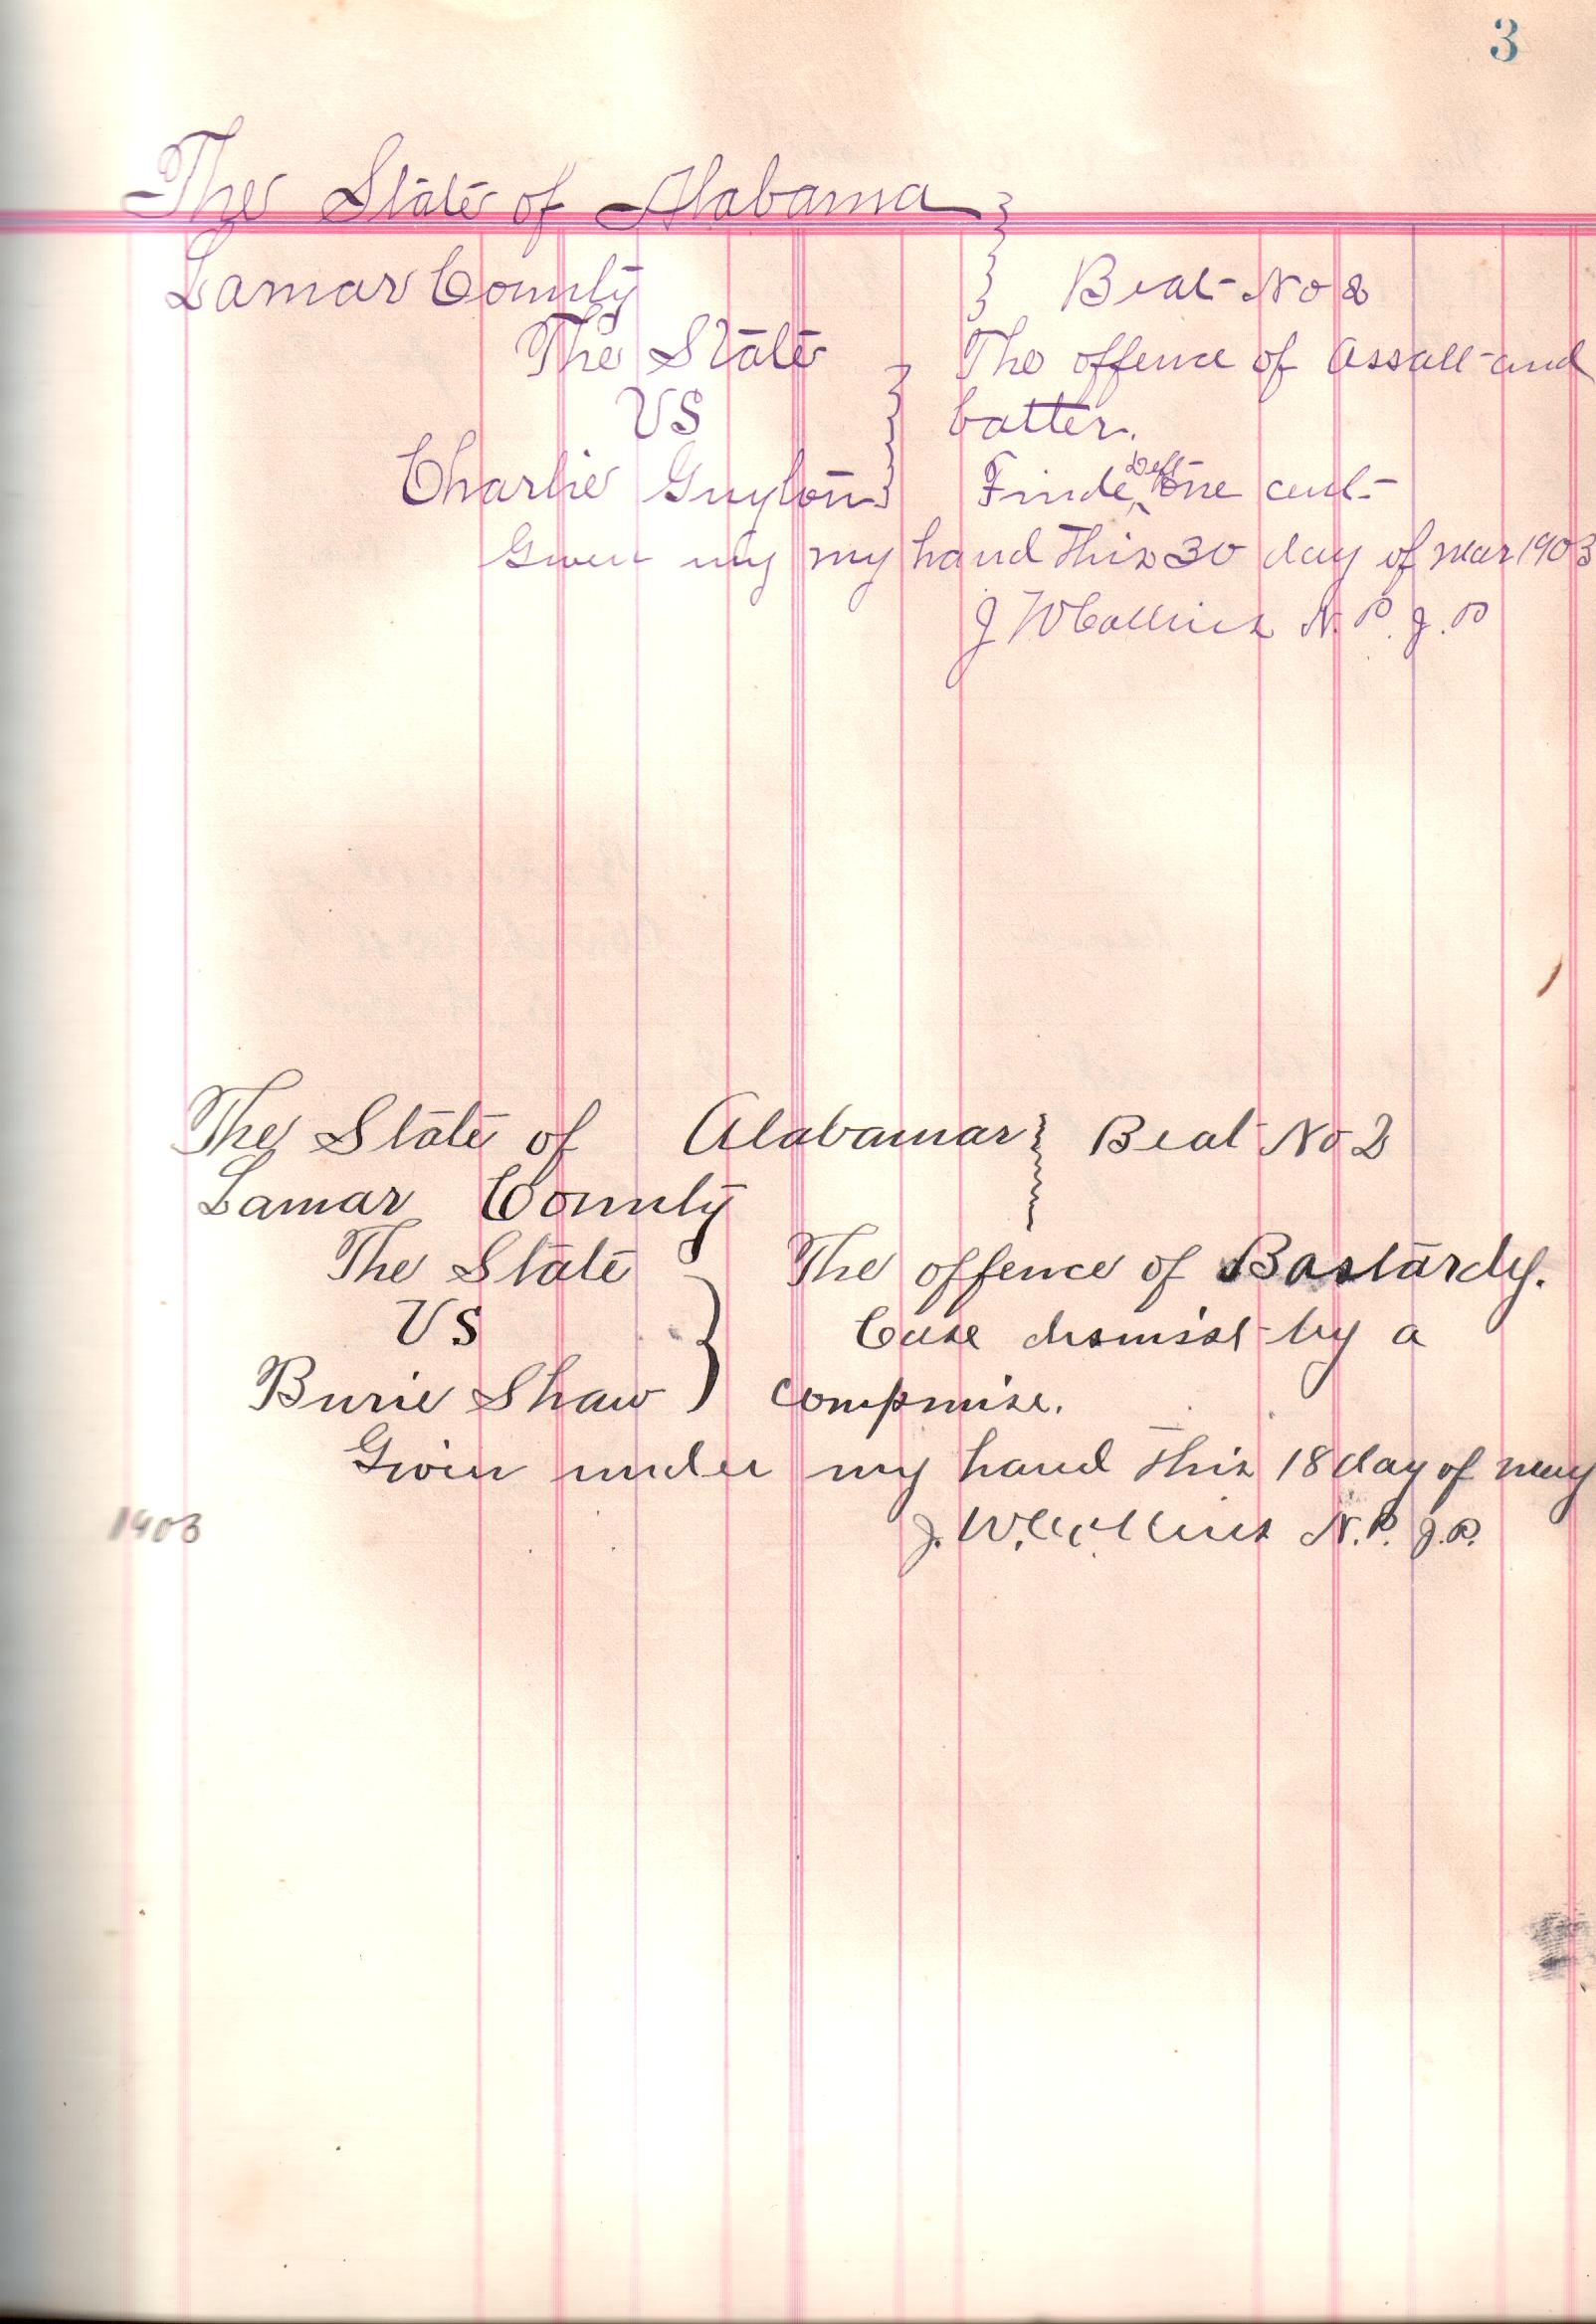 3
The State of Alabama
Lamar County Beat No 2
The State The offence of Assalt and
VS batter.
Charlie Guyton Finde deft One cent
Given my my hand this 30 day of mar 1903
J W Collins N. P. J. P
The State of Alabamar Beat No 2
Lamar County
The State The offence of Bastardy.
VS Case dismist by a
Burie Shaw compmise.
Given under my hand this 18 day of may
1903 J. W. Collins N. P. J. P.